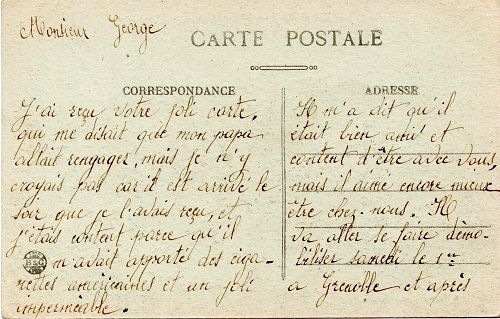 Monsieur George
CARTE POSTALE
CORRESPONDANCE
J'ai reçu votre joli carte,
qui me disait que mon papa
allait rengager, mais je n'y
croyais pas car il est arrivé le
soir que je l'avais reçu, et
j'étais content parce qu'il
m'avait apporté des ciga-
rettes américaines et un joli
imperméable.
B&G
ADRESSE
Il m'a dit qu'il
était bien ami et
content d'être avec vous,
mais il aime encore mieux
être chez-nous. Il
va aller se faire démo-
biliser samedi le 1er
a Grenoble et après